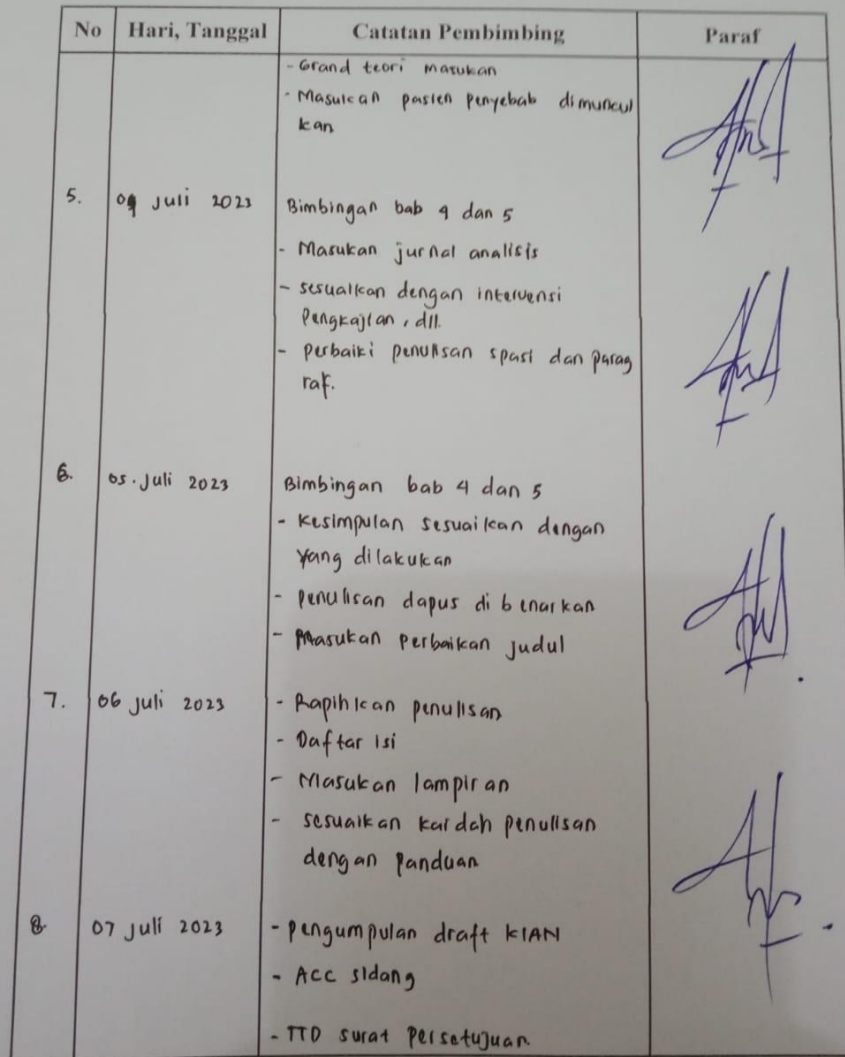 No Hari, Tanggal Catatan Pembimbing Paraf
- Grand teori masukan
- Masukan pasien penyebab dimuncul
kan
5. 04 Juli 2023 Bimbingan bab 4 dan 5
- Masukan jurnal analisis
- sesuaikan dengan intervensi
Pengkajian, dll.
- perbaiki penulisan spasi dan parag
raf.
6. 05. Juli 2023 Bimbingan bab 4 dan 5
- Kesimpulan sesuaikan dengan
yang dilakukan
- penulisan dapus di benarkan
- Masukan Perbaikan judul
7. 06 Juli 2023 - Rapihkan penulisan
- Daftar isi
- Masukan lampiran
- sesuaikan kaidah penulisan
dengan Panduan
8. 07 Juli 2023 - pengumpulan draft KIAN
- ACC sidang
- TTD surat Persetujuan.